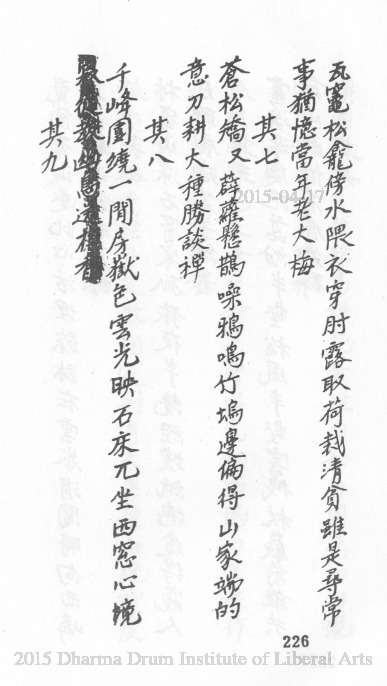 瓦竈松龕傍水隈衣穿肘露取荷栽清貧雖是尋常
事猶憶當年老大梅
其七
蒼松矯又薜蘿懸鵲噪鴉鳴竹塢邊偏得山家端的
意刀耕大種勝談禪
其八
千峰圍繞一間房嶽色雲光映石床兀坐西窓心境
其九
226
2015-04-17
2015 Dharma Drum Institute of Liberal Arts